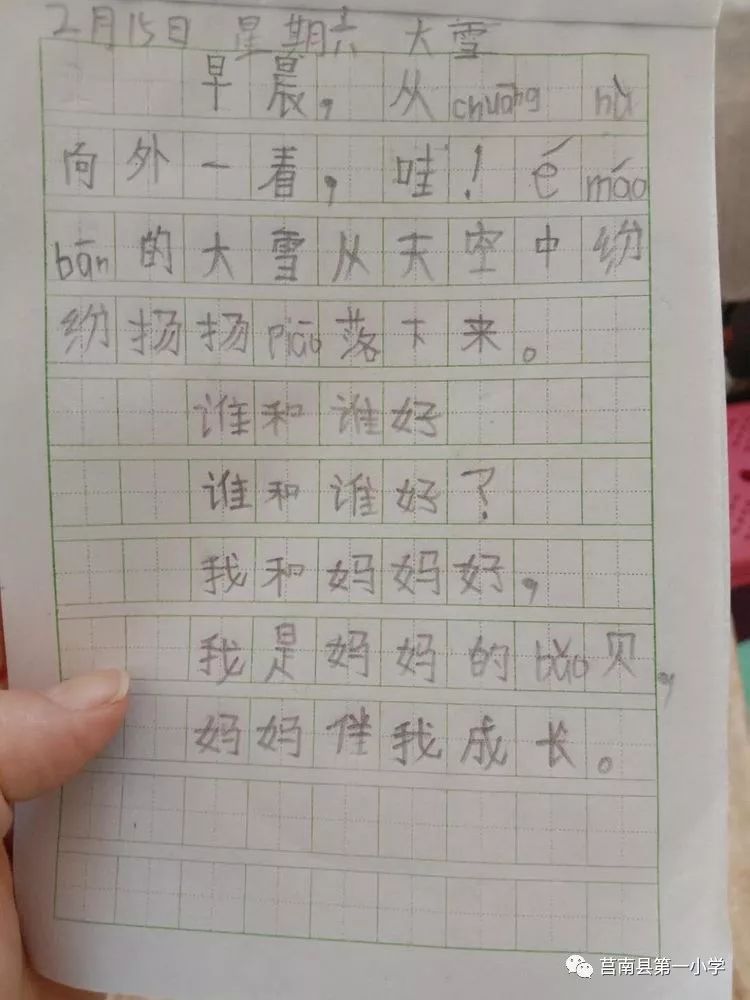 2月15日 星期六 大雪
早晨,从chuāng hù
向外一看,哇!é máo
bān的大雪从天空中纷
纷扬扬piāo落下来。
谁和谁好
谁和谁好?
我和妈妈好,
我是妈妈的bǎo贝,
妈妈伴我成长。
莒南县第一小学